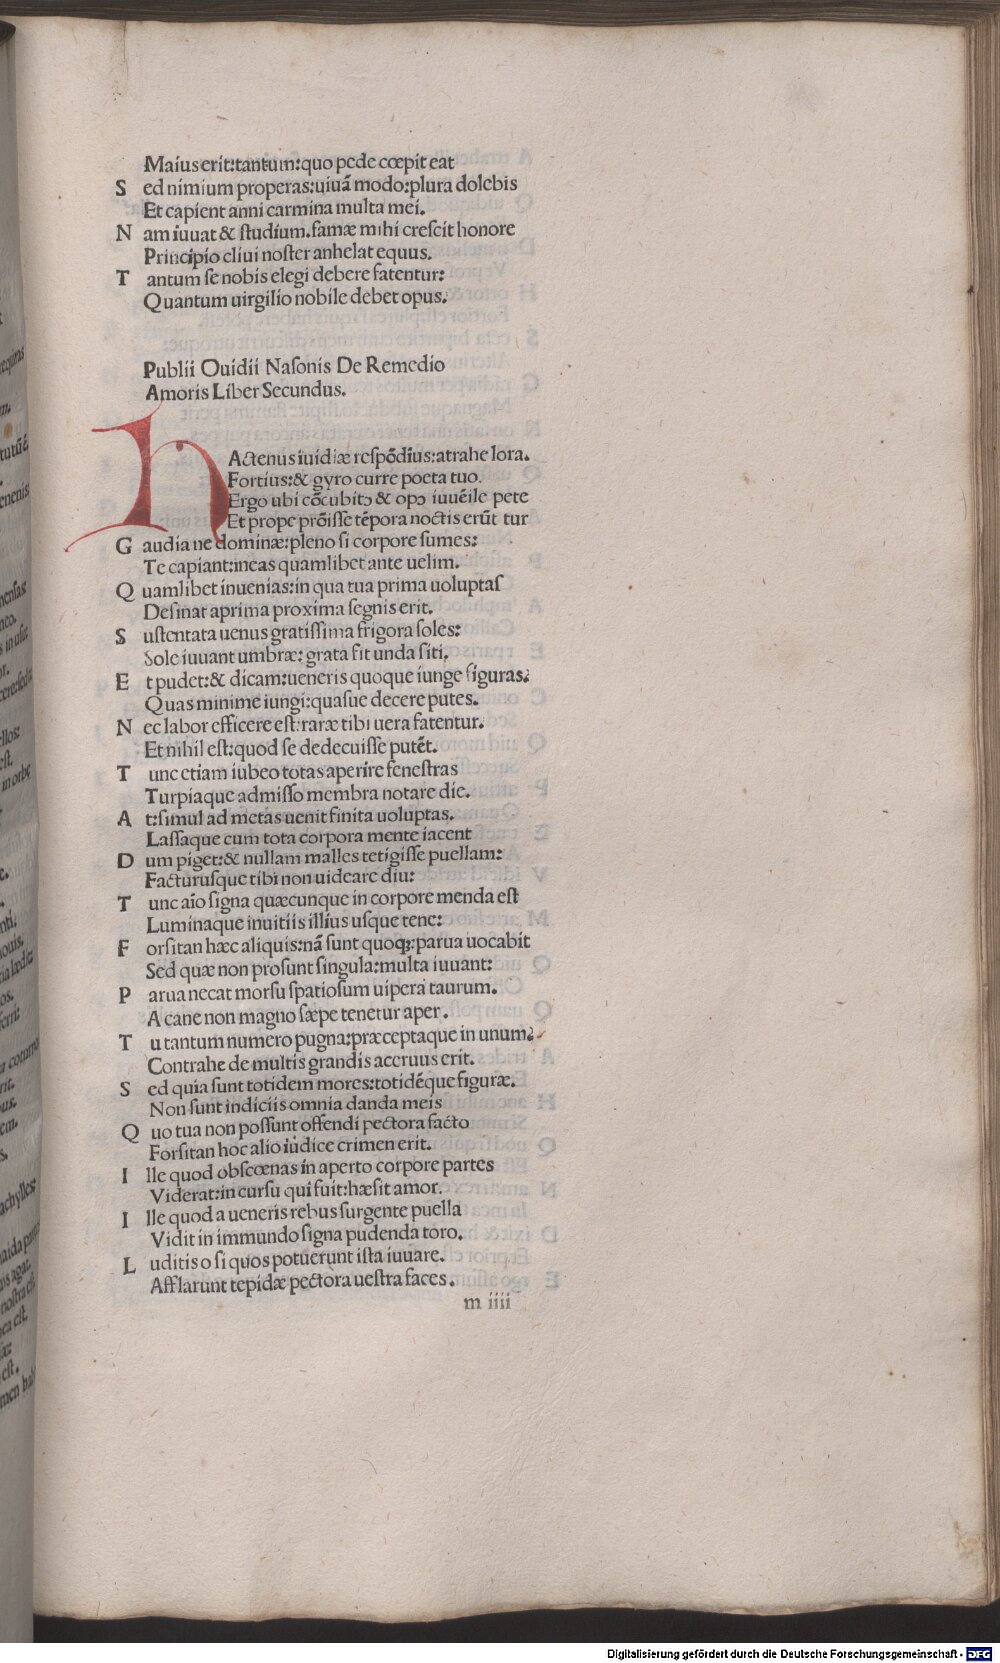 Maius erit:tantum:quo pede cœpit eat
S ed nimium properas:uiuā modo:plura dolebis
Et capient anni carmina multa mei.
N am iuuat & ſtudium.famæ mihi creſcit honore
Principio cliui noſter anhelat equus.
T antum ſe nobis elegi debere fatentur:
Quantum uirgilio nobile debet opus.
Publii Ouidii Naſonis De Remedio
Amoris Liber Secundus.
HActenus iuidiæ reſpōdius:atrahe lora.
Fortius:& gyro curre poeta tuo.
Ergo ubi cōcubitↄ & opↄ iuuēile pete
Et prope prōiſſe tēpora noctis erūt tur
G audia ne dominæ:pleno ſi corpore ſumes:
Te capiant:ineas quamlibet ante uelim.
Q uamlibet inuenias:in qua tua prima uoluptaſ
Deſinat aprima proxima ſegnis erit.
S uſtentata uenus gratiſſima frigora ſoles:
Sole iuuant umbræ: grata fit unda ſiti,
E t pudet:& dicam:ueneris quoque iunge figuras:
Quas minime iungi:quaſue decere putes.
N ec labor efficere eſt:raræ tibi uera fatentur.
Et nihil eſt:quod ſe dedecuiſſe putēt.
T unc etiam iubeo totas aperire feneſtras
Turpiaque admiſſo membra notare die.
A t:ſimul ad metas uenit finita uoluptas.
Laſſaque cum tota corpora mente iacent
D um piget:& nullam malles tetigiſſe puellam:
Facturuſque tibi non uideare diu:
T unc aīo ſigna quæcunque in corpore menda eſt
Luminaque inuitiis illius uſque tene:
F orſitan hæc aliquis:nā ſunt quoqꝫ:parua uocabit
Sed quæ non proſunt ſingula:multa iuuant:
P arua necat morſu ſpatioſum uipera taurum.
A cane non magno ſæpe tenetur aper.
T u tantum numero pugna:præceptaque in unum:
Contrahe de multis grandis aceruus erit.
S ed quia ſunt totidem mores:totidēque figuræ.
Non ſunt indiciis omnia danda meis
Q uo tua non poſſunt offendi pectora facto
Forſitan hoc alio iudice crimen erit.
I lle quod obſcœnas in aperto corpore partes
Viderat:in curſu qui fuit:hæſit amor.
I lle quod a ueneris rebus ſurgente puella
Vidit in immundo ſigna pudenda toro.
L uditis o ſi quos potuerunt iſta iuuare.
Afflarunt tepidæ pectora ueſtra faces.
m iiii
Digitalisierung gefördert durch die Deutsche Forschungsgemeinschaft - DFG